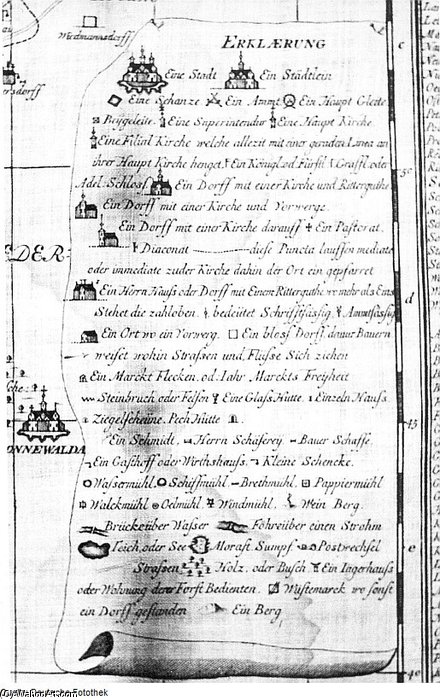 Wiedmannsdorff
ERKLÆRUNG
Eine Stadt Ein Städtlein
Eine Schanze Ein Ammt Ein Haupt Gleite
Beygeleite Eine Superintendur Eine Haupt Kirche
Eine Filial Kirche welche allezit mit einer geraden Linea an
ihrer Haupt Kirche henget Ein Königl. od Fürstl Gräffl. oder
Adel: Schloss Ein Dorff mit einer Kirche und Ritterguthe
Ein Dorff mit einer Kirche und Vorwergc
Ein Dorff mit einer Kirche darauff Ein Pastorat
Diaconat diese Puncta lauffen mediate
DER
oder immediate zu der Kirche dahin der Ort ein gepfarret
Ein Herrn Hauss oder Dorff mit Einem Ritterguthe wo mehr als Eins
Stehet die zahl oben bedeitet Schrifftsässig Ammtsässig
Ein Ort wo ein Vorwerg Ein bloss Dorff darin Bauern
weiset wohin Strassen und Flüsse Sich ziehen
Ein Marckt Flecken od Iahr Marckts Freyheit
Steinbruch oder Felsen Eine Glass Hütte Einzeln Hauss
Ziegelscheüne Pech Hütte
ONNEWALDA
Ein Schmidt Herrn Schäferey Bauer Schaffe
Ein Gasthoff oder Wirthshauss Kleine Schencke
Wassermühl Schiffmühl Brethmühl Pappiermühl
Walckmühl Oelmühl Windmühl Wein Berg
Brücke über Wasser Föhre über einen Strohm
Teich oder See Morast Sumpf Postwechsel
Strassen Holz oder Busch Ein Iägerhauss
oder Wohnung derer Forst Bedienten Wüstemarck wo sonst
ein Dorff gestanden Ein Berg
c
d
e